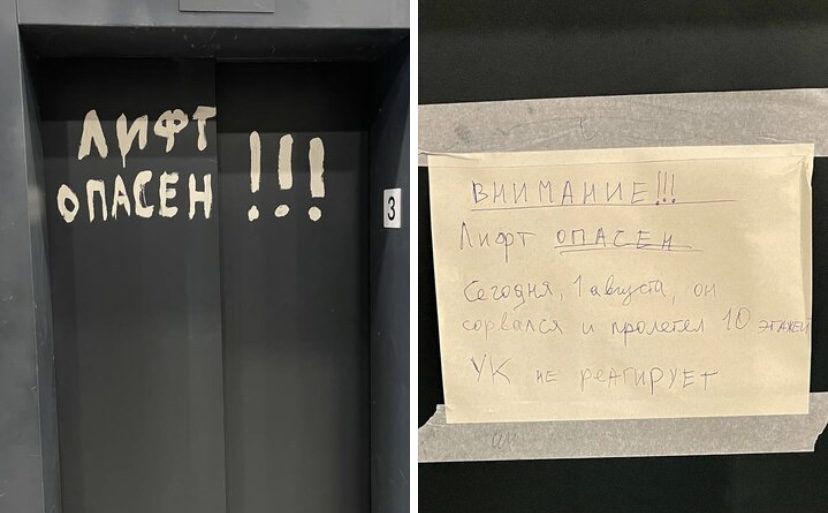 ЛИФТ
ОПАСЕН !!!
3
ВНИМАНИЕ!!!
Лифт ОПАСЕН
Сегодня, 1 августа, он
сорвался и пролетел 10 этажей
УК не реагирует